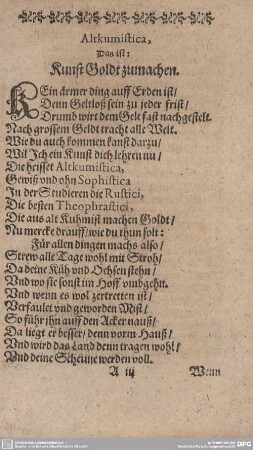 Altkumistica,
Das ist:
Kunst Goldt zumachen.
KEin ärmer ding auff Erden ist/
Denn Geltloß sein zu jeder frist/
Drumb wirt dem Gelt fast nachgestelt.
Nach grossem Geldt tracht alle Welt.
Wie du auch kommen kanst darzu/
Wil Jch ein Kunst dich lehren nu/
Die heisset Altkumistica,
Gewiß vnd ohn Sophistica
In der Studieren die Rustici,
Die besten Theophrastici,
Die aus alt Kuhmist machen Goldt/
Nu mercke drauff/ wie du thun solt:
Für allen dingen machs also/
Strew alle Tage wohl mit Stroh/
Da deine Küh vnd Ochsen stehn/
Vnd wo sie sonst im Hoff vmbgehn.
Vnd wenn es wol zertretten ist/
Verfaulet vnd geworden Mist/
So führ jhn auff den Acker nauß/
Da liegt er besser/ denn vorm Hauß/
Vnd wird das Land denn tragen wohl/
Vnd deine Scheüne werden voll.
A iij Wenn